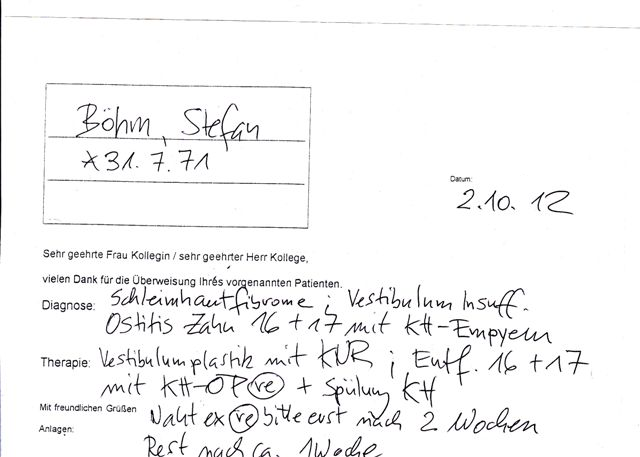 Böhm, Stefan
*31.7.71
Datum:
2.10.12
Sehr geehrte Frau Kollegin / sehr geehrter Herr Kollege,
vielen Dank für die Überweisung Ihres vorgenannten Patienten.
Diagnose: Schleimhautfibrome ; Vestibulum Insuff.
Ostitis Zahn 16 + 17 mit KH-Empyem
Therapie: Vestibulumplastik mit KUR ; Entf. 16 + 17
mit KH-OP re + Spülung KH
Mit freundlichen Grüßen Naht ex re bitte erst nach 2 Wochen
Anlagen: Rest nach ca. 1 Woche